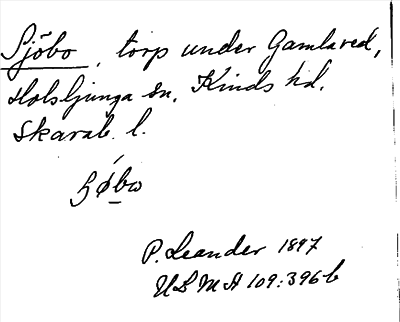 Sjöbo, torp under Gamlared,
Holsljunga sn, Kinds hd,
Skarab. l.
P. Leander 1897
ULMA 109:396b